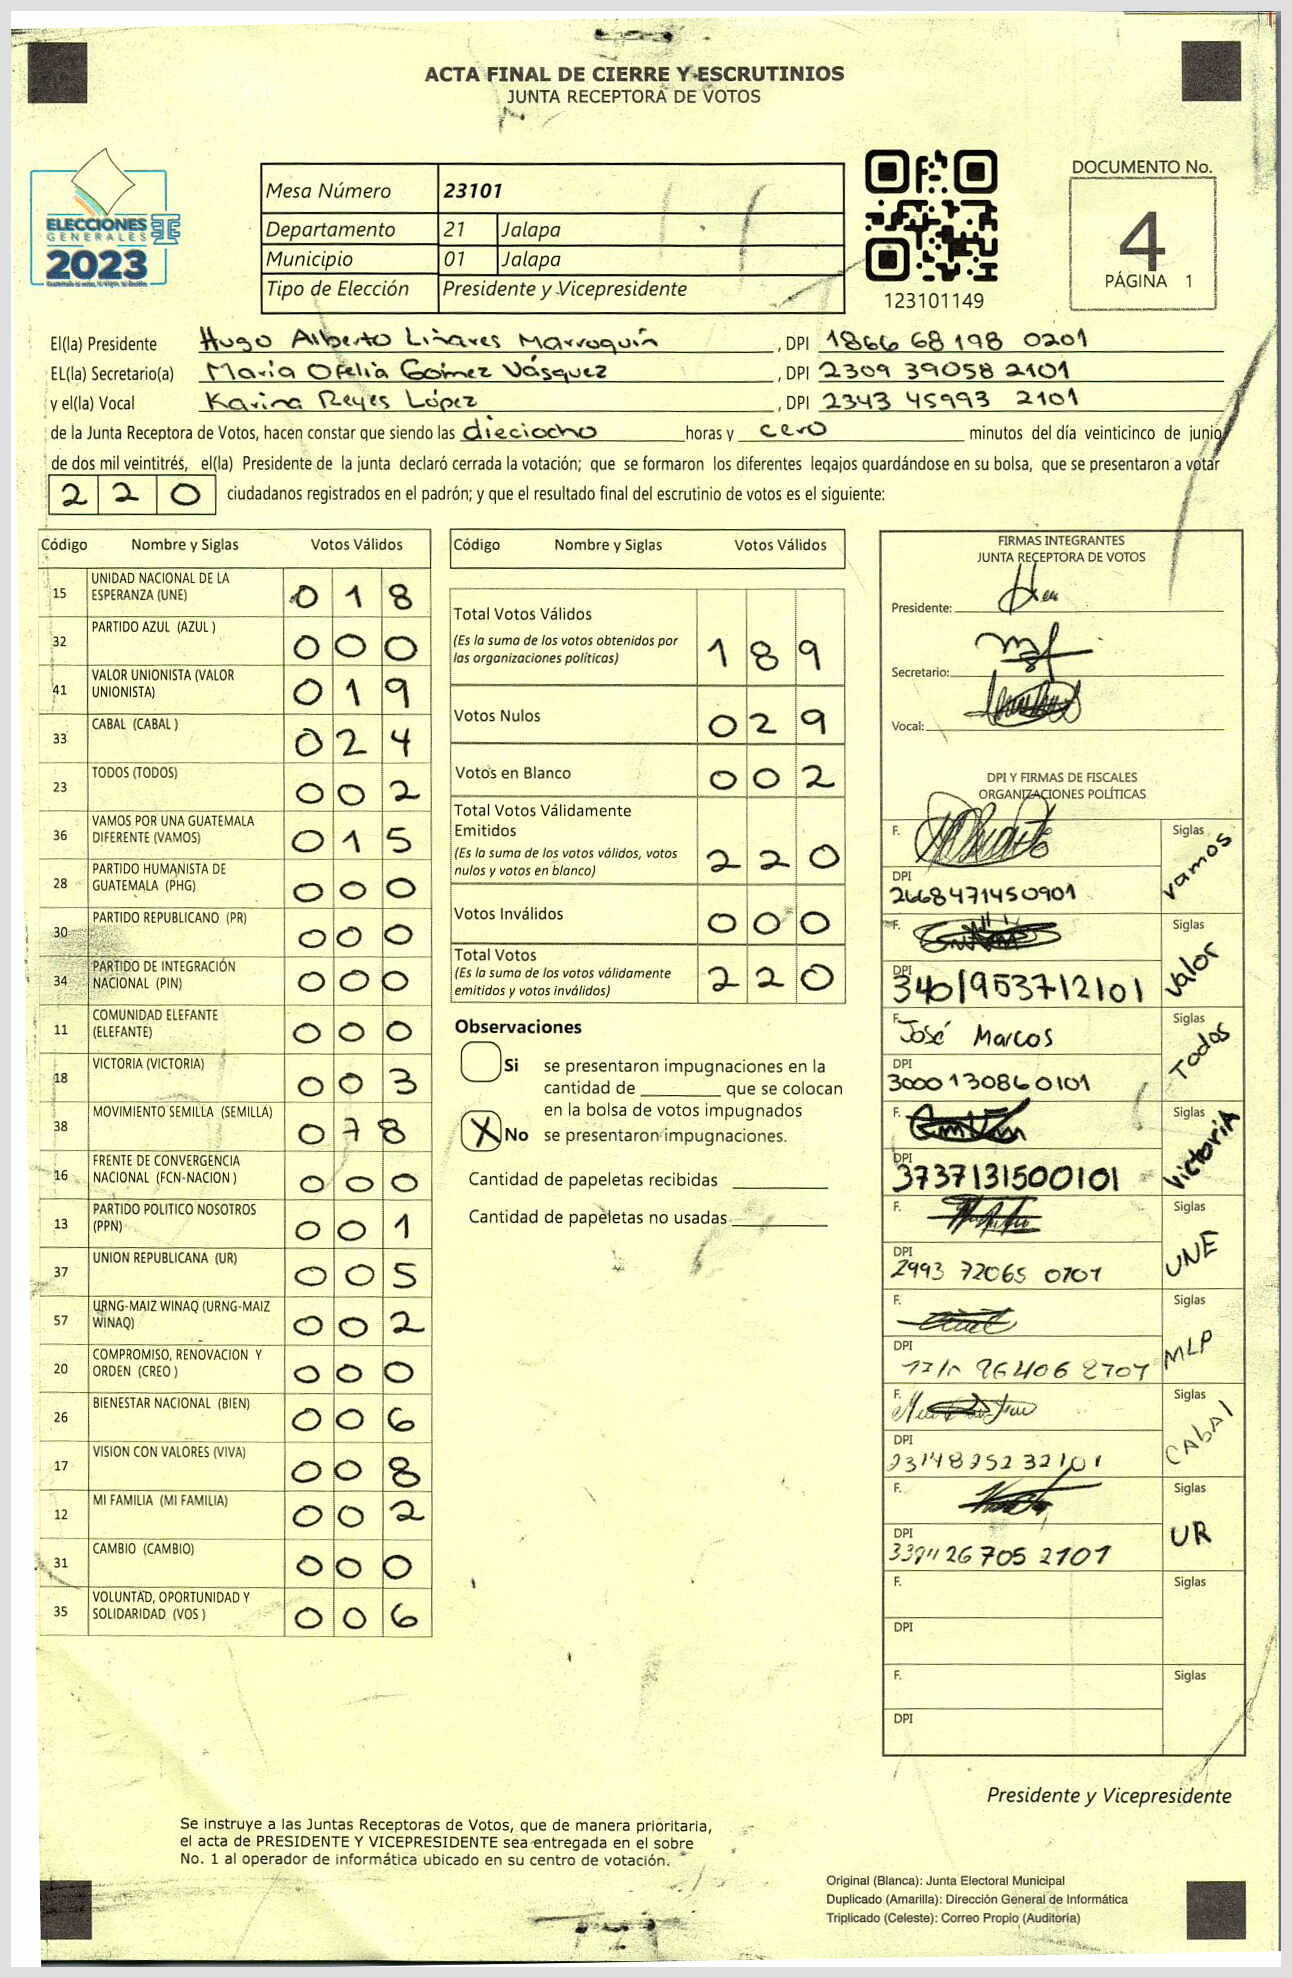 ACTA FINAL DE CIERRE Y ESCRUTINIOS
JUNTA RECEPTORA DE VOTOS
ELECCIONES
GENERALES
2023
Mesa Número 23101
Departamento 21 Jalapa
Municipio 01 Jalapa
Tipo de Elección Presidente y Vicepresidente
123101149
DOCUMENTO No.
4
PÁGINA 1
El(la) Presidente Hugo Alberto Liñares Marroquín , DPI 1866 68198 0201
EL(la) Secretario(a) María Ofelia Gómez Vásquez , DPI 2309 39058 2101
y el(la) Vocal Karina Reyes López , DPI 2343 45993 2101
de la Junta Receptora de Votos, hacen constar que siendo las dieciocho horas y cero minutos del día veinticinco de junio
de dos mil veintitrés, el(la) Presidente de la junta declaró cerrada la votación; que se formaron los diferentes legajos guardándose en su bolsa, que se presentaron a votar
220 ciudadanos registrados en el padrón; y que el resultado final del escrutinio de votos es el siguiente:
Código Nombre y Siglas Votos Válidos
15 UNIDAD NACIONAL DE LA ESPERANZA (UNE) 018
32 PARTIDO AZUL (AZUL ) 000
41 VALOR UNIONISTA (VALOR UNIONISTA) 019
33 CABAL (CABAL ) 024
23 TODOS (TODOS) 002
36 VAMOS POR UNA GUATEMALA DIFERENTE (VAMOS) 015
28 PARTIDO HUMANISTA DE GUATEMALA (PHG) 000
30 PARTIDO REPUBLICANO (PR) 000
34 PARTIDO DE INTEGRACIÓN NACIONAL (PIN) 000
11 COMUNIDAD ELEFANTE (ELEFANTE) 000
18 VICTORIA (VICTORIA) 003
38 MOVIMIENTO SEMILLA (SEMILLA) 078
16 FRENTE DE CONVERGENCIA NACIONAL (FCN-NACION ) 000
13 PARTIDO POLITICO NOSOTROS (PPN) 001
37 UNION REPUBLICANA (UR) 005
57 URNG-MAIZ WINAQ (URNG-MAIZ WINAQ) 002
20 COMPROMISO, RENOVACION Y ORDEN (CREO ) 000
26 BIENESTAR NACIONAL (BIEN) 006
17 VISION CON VALORES (VIVA) 008
12 MI FAMILIA (MI FAMILIA) 002
31 CAMBIO (CAMBIO) 000
35 VOLUNTAD, OPORTUNIDAD Y SOLIDARIDAD (VOS ) 006
Código Nombre y Siglas Votos Válidos
Total Votos Válidos 189
(Es la suma de los votos obtenidos por
las organizaciones políticas)
Votos Nulos 029
Votos en Blanco 002
Total Votos Válidamente
Emitidos 220
(Es la suma de los votos válidos, votos
nulos y votos en blanco)
Votos Inválidos 000
Total Votos 220
(Es la suma de los votos válidamente
emitidos y votos inválidos)
Observaciones
Si se presentaron impugnaciones en la
cantidad de ________ que se colocan
en la bolsa de votos impugnados
X No se presentaron impugnaciones.
Cantidad de papeletas recibidas
Cantidad de papeletas no usadas
FIRMAS INTEGRANTES
JUNTA RECEPTORA DE VOTOS
Presidente:
Secretario:
Vocal:
DPI Y FIRMAS DE FISCALES
ORGANIZACIONES POLÍTICAS
F. Siglas vamos
DPI
2668471450901
F. Siglas Valor
DPI
3401953712101
F. José Marcos Siglas Todos
DPI
3000130860101
F. Siglas VictoriA
DPI
3737131500101
F. Siglas UNE
DPI
2993 72065 0701
F. Siglas MLP
DPI
F. Siglas CABAl
DPI
F. Siglas UR
DPI
F. Siglas
DPI
F. Siglas
DPI
Presidente y Vicepresidente
Se instruye a las Juntas Receptoras de Votos, que de manera prioritaria,
el acta de PRESIDENTE Y VICEPRESIDENTE sea entregada en el sobre
No. 1 al operador de informática ubicado en su centro de votación.
Original (Blanca): Junta Electoral Municipal
Duplicado (Amarilla): Dirección General de Informática
Triplicado (Celeste): Correo Propio (Auditoría)